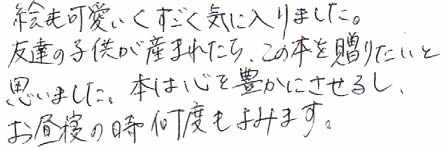 絵も可愛いくすごく気に入りました。
友達の子供が産まれたら、この本を贈りたいと
思いました。本は心を豊かにさせるし、
お昼寝の時何度もよみます。